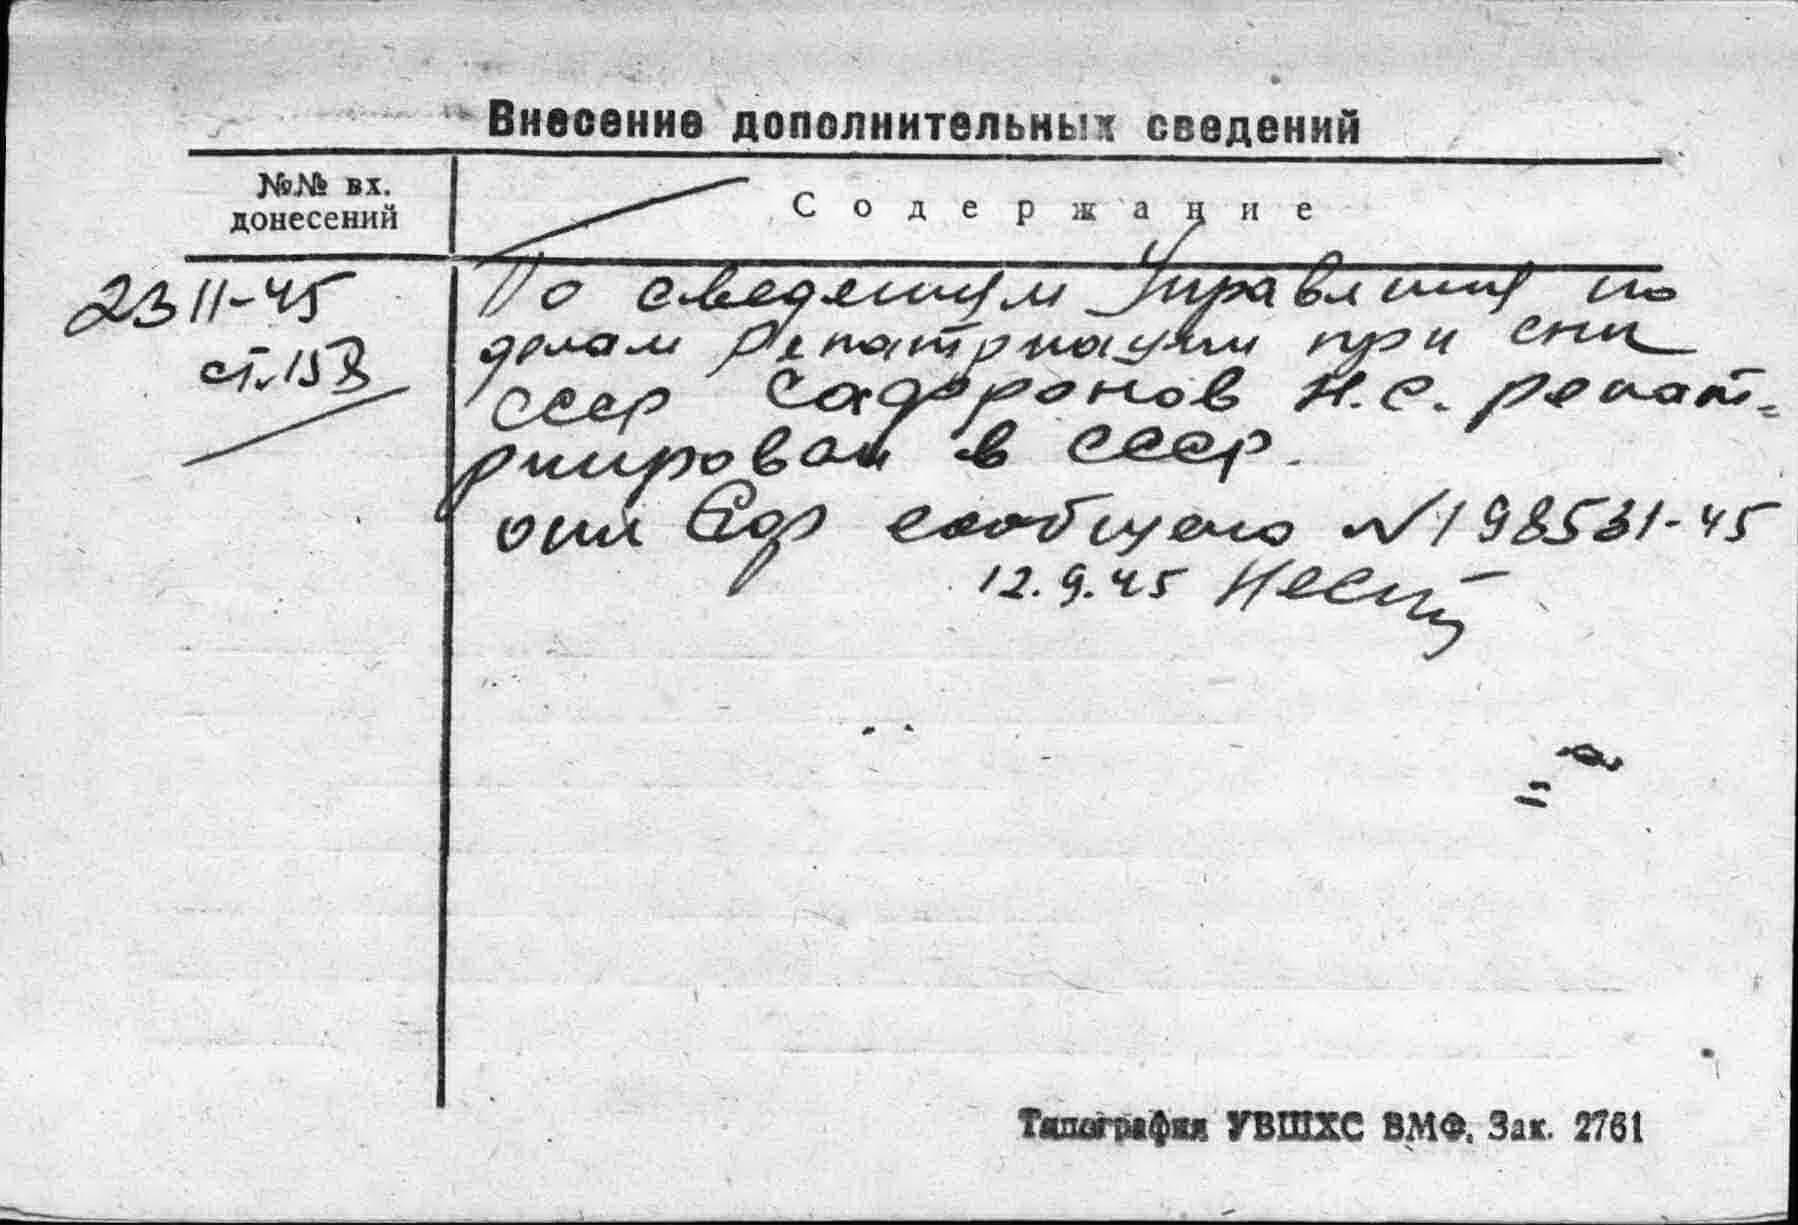 Внесение дополнительных сведений
№№ вх.
донесений
Содержание
23 11-45
ст. 158
По сведениям Управления по
делам Репатриации при СНК
СССР Н.С. репат-
риирован в СССР.
сообщено N 198531-45
12.9.45
Типография УВШХС ВМФ. Зак. 2761